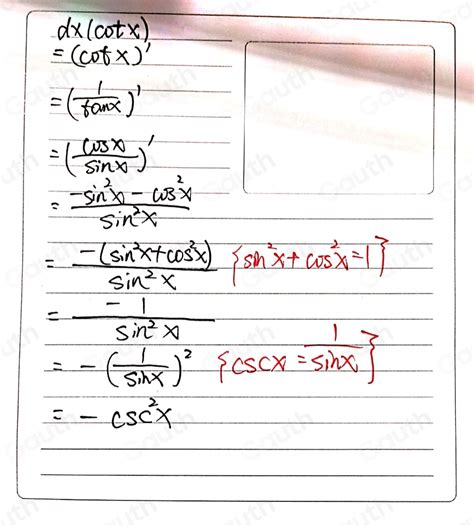 dx(cotx)
= (cotx)'
= (1/tanx)'
= (cosx/sinx)'
= (-sin²x - cos²x)/sin²x
= -(sin²x+cos²x)/sin²x {sin²x+cos²x=1}
= -1/sin²x
= -(1/sinx)² {cscx = 1/sinx}
= -csc²x